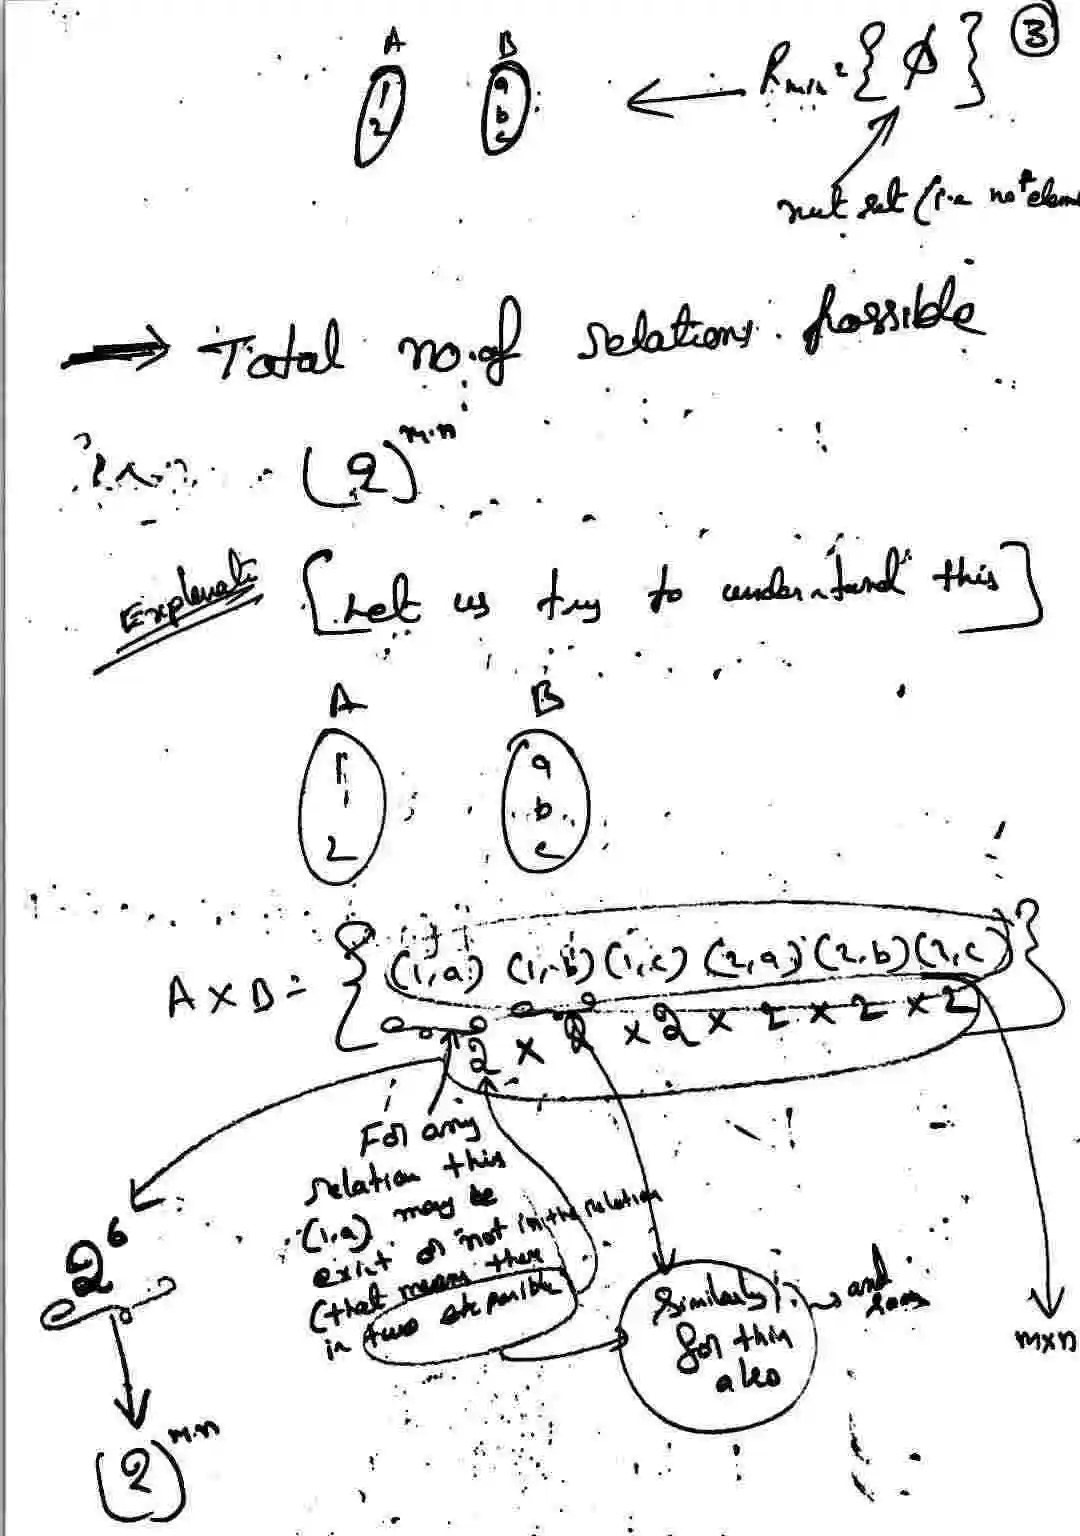 ③
A B
1 a
2 b
c
R min = { ϕ }
null set (i.e no element
→ Total no. of relations possible
(2)^m.n
Explanati [Let us try to understand this]
A B
1 a
b
2 c
A × B = { (1,a) (1,b) (1,c) (2,a) (2,b) (2,c) }
2 × 2 × 2 × 2 × 2 × 2
For any
relation this
(1,a) may be
exist or not in the relation
(that means there
is two possible
Similarly
for this
also
and
so on
m×n
2^6
(2)^m.n